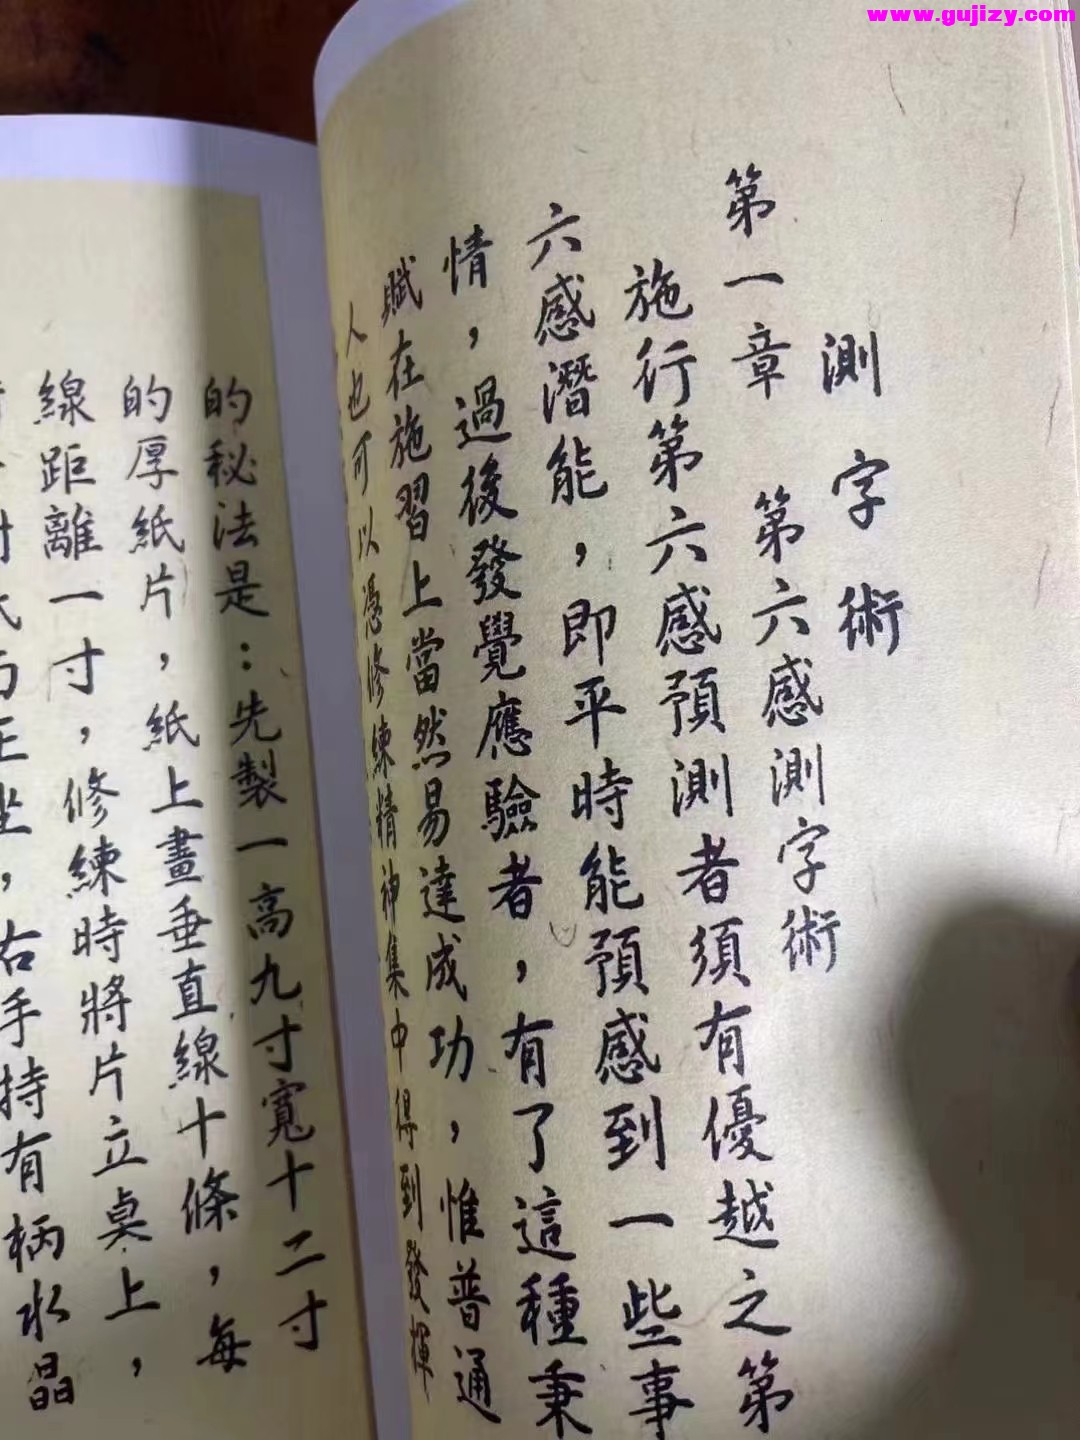 www.gujizy.com
測字術
第一章 第六感測字術
施行第六感預測者須有優越之第
六感潛能，即平時能預感到一些事
情，過後發覺應驗者，有了這種秉
賦在施習上當然易達成功，惟普通
人也可以憑修練精神集中得到發揮
的秘法是：先製一高九寸寬十二寸
的厚紙片，紙上畫垂直線十條，每
線距離一寸，修練時將片立桌上，
而正坐，右手持有柄水晶